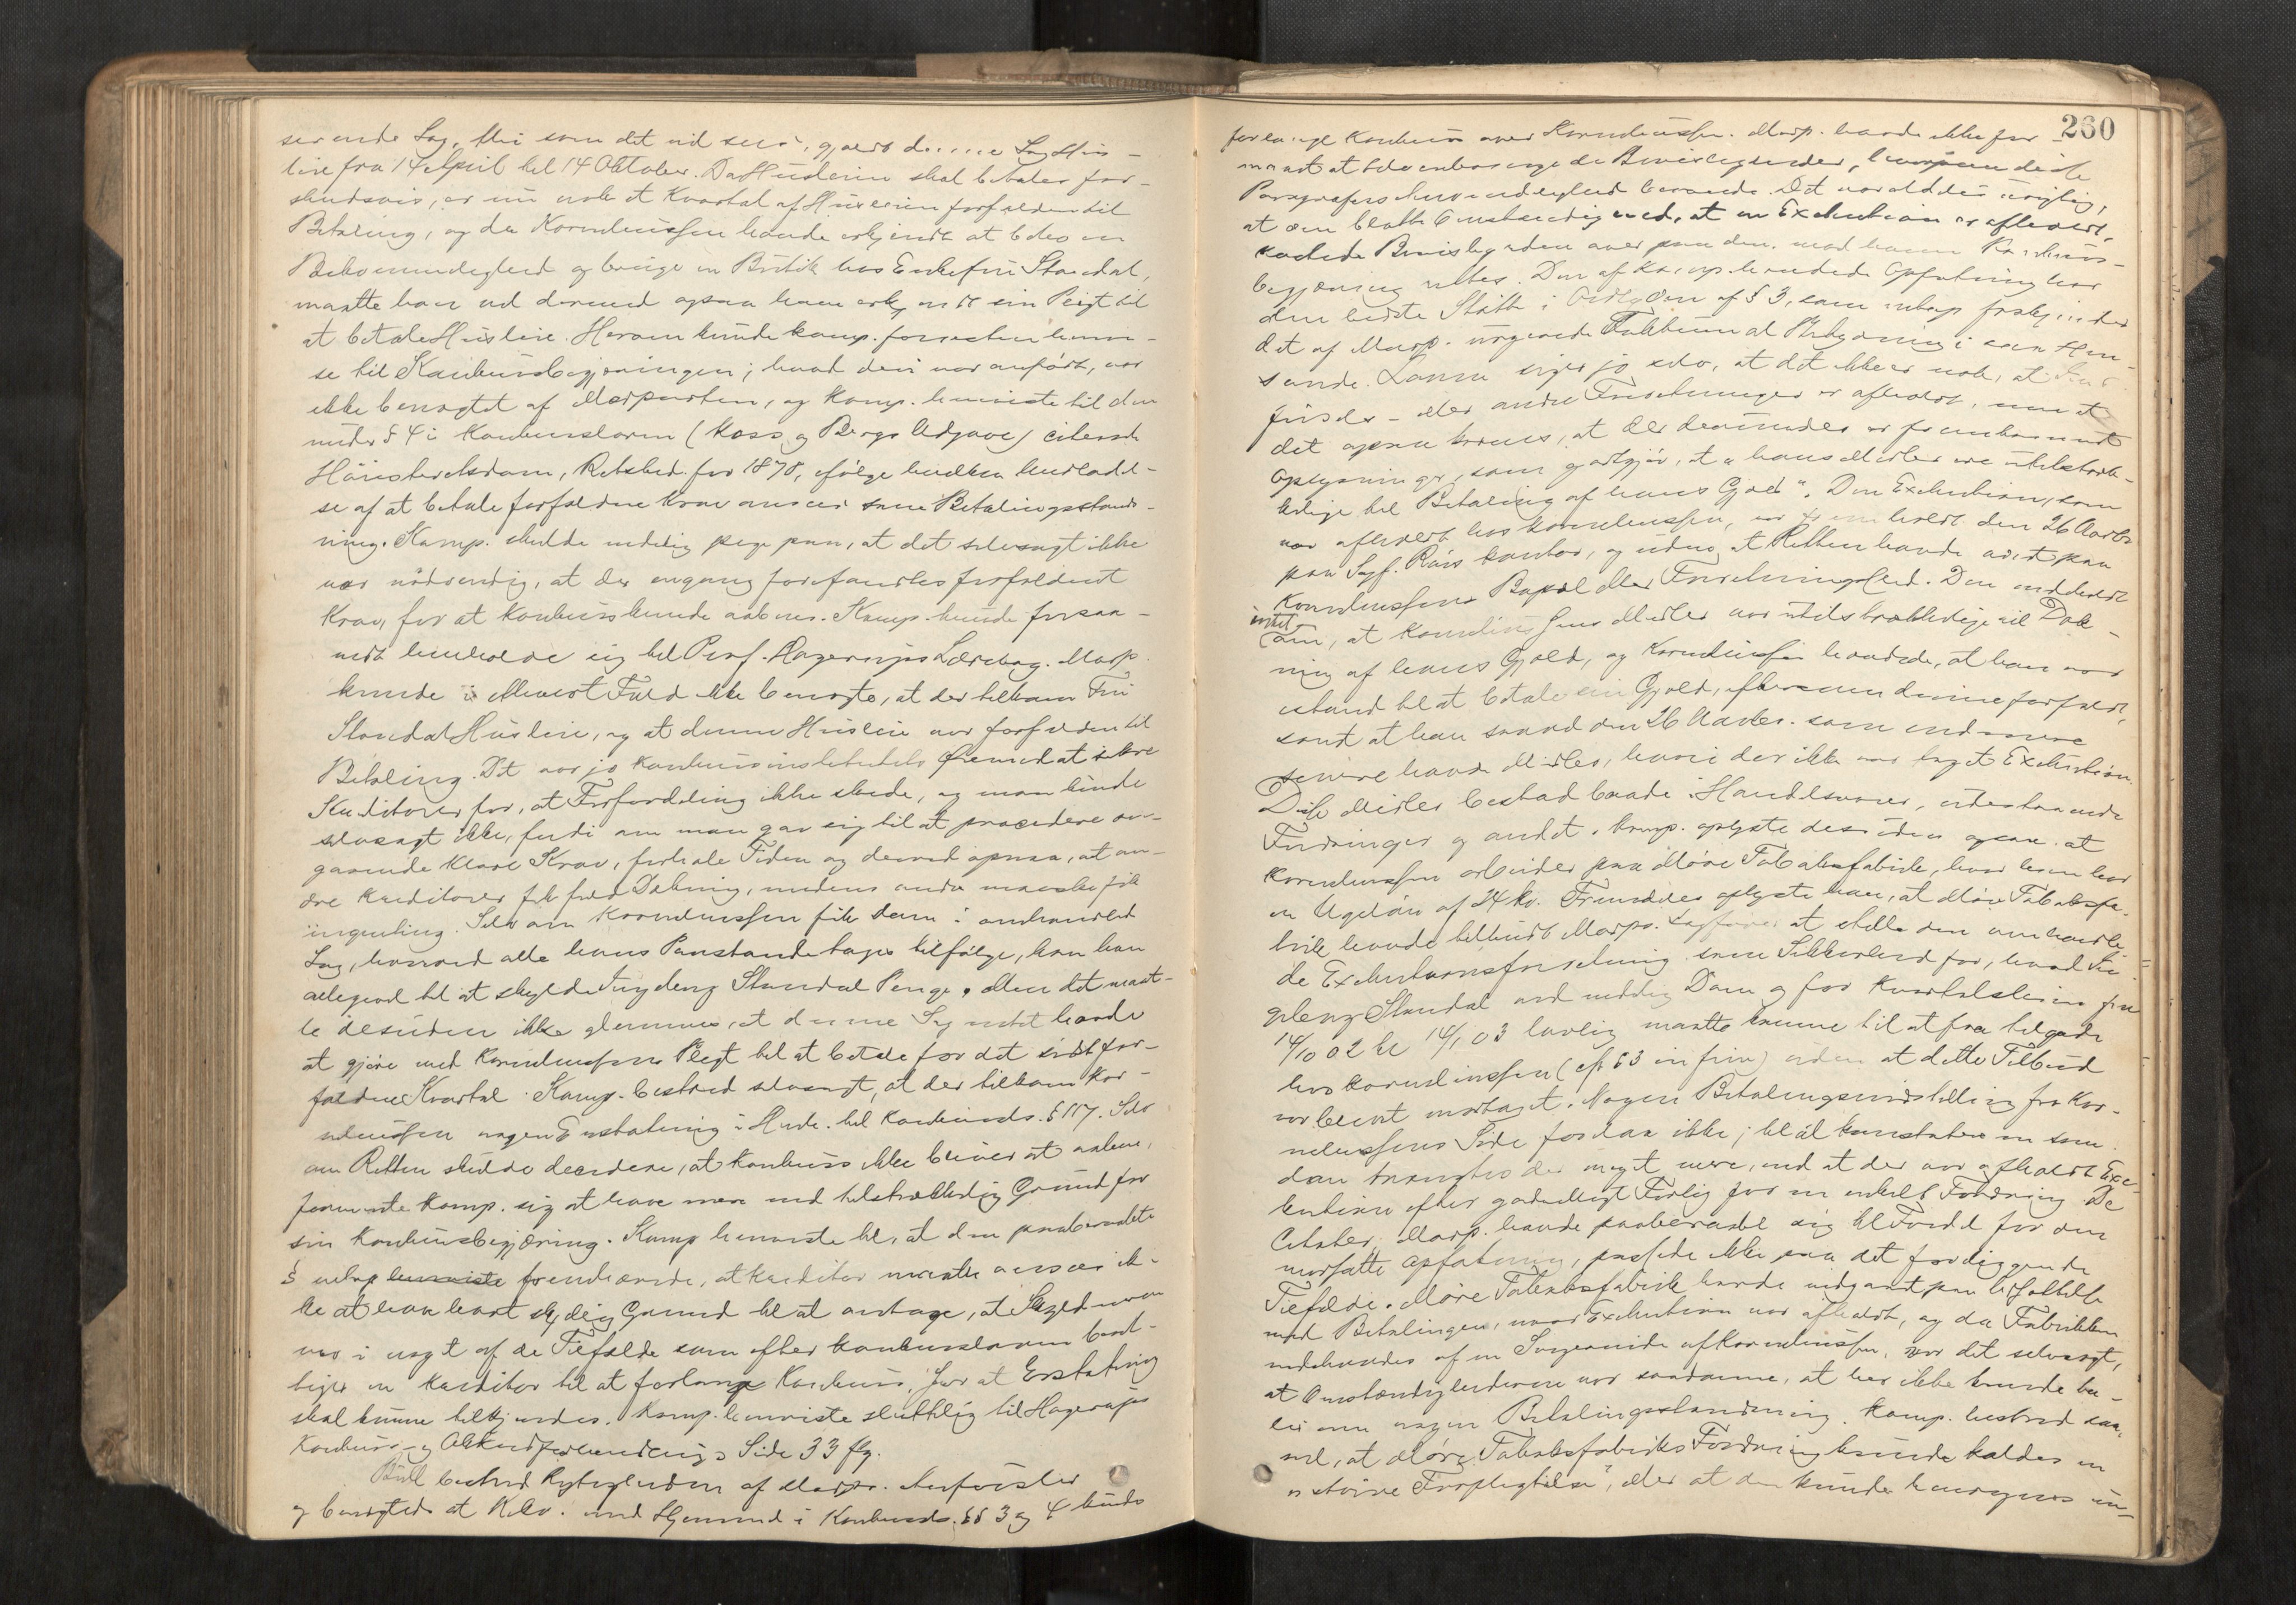 serende Sag. Men som det vil sees, gjaldt denne Sag Hus-
leie fra 14 April til 14 Oktober. Da Huslejen skal betales for-
skudsvis, er nu nok et Kvartal af Huslejen forfalden til
Betaling, og da Kornelиussen havde erkjendt at bebo en
Bekvemmelighed og bruge en Butik hos Enkefru Standal,
maatte han vel dermed ogsaa have erkjendt sin Pligt til
at betale Husleie. Herom kunde komp. forresten henvi-
se til Konkursbegjæringen; hvad deri var anført, var
ikke benegtet af Modparten, og Komp. henviste til den
under § 4 i Konkursloven (Koss og Bergs Udgave) citerede
Høiesteretsdom, Retstid. for 1878, ifølge hvilken Undladel-
se af at betale forfaldne Krav ansees som Betalingsstands-
ning. Komp. skulde endelig pege paa, at det selvsagt ikke
var nødvendig, at der engang forefandtes forfaldent
Krav, for at Konkurs kunde aabnes. Komp. kunde forsaa-
vidt henholde sig til Prof. Hagerups Lærebog. Modp.
kunde i ethvert Fald ikke benegte, at der tilkom Fru
Standal Husleie, og at denne Husleie var forfalden til
Betaling. Det var jo Konkursinstitutets Øiemed at sikre
Kreditorer for, at Forfordeling ikke skede, og man kunde
selvsagt ikke, fordi om man gav sig til at procedere an-
gaaende klare Krav, forhale Tiden og derved opnaa, at an-
dre Kreditorer fik fuld Dækning, medens andre maaske fik
ingenting. Selv om Kornelиussen fik Dom i omhandlede
Sag, hvorved alle hans Paastande toges tilfølge, kom han
allegevel til at skylde Fru Standal Penge. Men det maat-
te desuden ikke glemmes, at denne Sag intet havde
at gjøre med Korneliussens Pligt til at betale for det sidst for-
faldne Kvartal. Komp. bestred selvsagt, at der tilkom Kor-
neliussen nogen Erstatning i Henh. til Konkursl. § 117. Selv
om Retten skulde decidere, at Konkurs ikke bliver at aabne,
formente Komp. sig at have mere end tilstrækkelig Grund for
sin Konkursbegjæring. Komp. henviste til, at den paaberaabte
§ netop henviste fremhævede, at Kreditor maatte ansees ik-
ke at have havt skjellig Grund til at antage, at Skyldneren
var i noget af de Tilfælde som efter Konkursloven beret-
tiger en Kreditor til at forlange Konkurs, for at Erstatning
skal kunne tilkjendes. Komp. henviste sluttelig til Hagerups
Konkurs- og Akkordforhandling, Side 33 flg.
Bull bestred Rigtigheden af Modps. Anførsler
og benegtede at Rekv. med Hjemmel i Konkursl. §§ 3 og 4 kunde
260
forlange Konkurs over Korneliussen. Modp. havde ikke for-
maaet at tilveiebringe de Bevisligheder, hvorom disse
Paragrafers Anvendelighed beroede. Det var aldeles urigtig,
at den blotte Omstændighed, at en Exekution er afholdt,
kastede Bevisbyrden over paa den, mod hvem Konkurs-
begjæring rettes. Den af Komp. hævdede Opfatning har
den bedste Støtte i Ordlyden af § 3, som netop frakjender
det af Modp. urgerede Faktum al Betydning i saa Hen-
seende. Loven siger jo selv, at det ikke er nok, at
det ogsaa kræves, at der desuden er fremkommet
Oplysninger, som godtgjør, at "hans Midler ere utilstrække-
kelige til Betaling af hans Gjæld". Den Exekution, som
var afholdt hos Korneliussen, var fremholdt den 26 Novbr.
paa Sagf. Riis kontor, og uden at Retten havde været paa
Korneliussens Bopæl eller Forretningssted. Den meddelte
intet
om, at Korneliussens Midler var utilstrækkelige til Dæk-
ning af hans Gjæld, og Korneliussen hævdede, at han var
istand til at betale sin Gjæld, eftersom denne forfaldt,
samt at han saavel den 26 Novbr. som end mere
senere havde Midler, hvori der ikke var taget Exekution.
Disse Midler bestod baade i Handelsvarer, udestaaende
Fordringer og andet. Komp. oplyste desuden ogsaa at
Korneliussen arbeider paa Møre Tobaksfabrik, hvor han har
en Ugeløn af 24 kr. Fremdeles oplyste han, at Møre Tobaksfa-
brik havde tilbudt Modps. Sagfører at stille den omhandle-
de Exekutionsforretning som Sikkerhed for, hvad Fru
Standal ved endelig Dom og for Kvartalsleien fra
14/10 02 til 14/1 03 lovlig maatte komme til at faa tilgode
hos Korneliussen (cfr § 3 in fine) uden at dette Tilbud
var blevet modtaget. Nogen Betalingsindstilling fra Kor-
neliussens Side forelaa ikke; til at konstatere en saa-
dan trængtes der meget mere, end at der var afholdt Exe-
kution efter gjensidigt Forlig for en enkelt Fordring. De
Citater, Modp. havde paaberaabt sig til Fordel for den
modsatte Opfatning, passede ikke paa det foreliggende
Tilfælde. Møre Tobaksfabrik havde indgaat paa Udsættelse
med Betalingen, naar Exekution var afholdt, og da Fabrikken
indehaves af en Svigerinde af Korneliussen, var det selvsagt,
at Omstændighederne var saadanne, at her ikke kunde ta-
les om nogen Betalingsstandsning. Komp. bestred saa-
vel, at Møre Tobaksfabriks Fordring kunde kaldes en
"større Forpligtelse", eller at den kunde henregnes un-